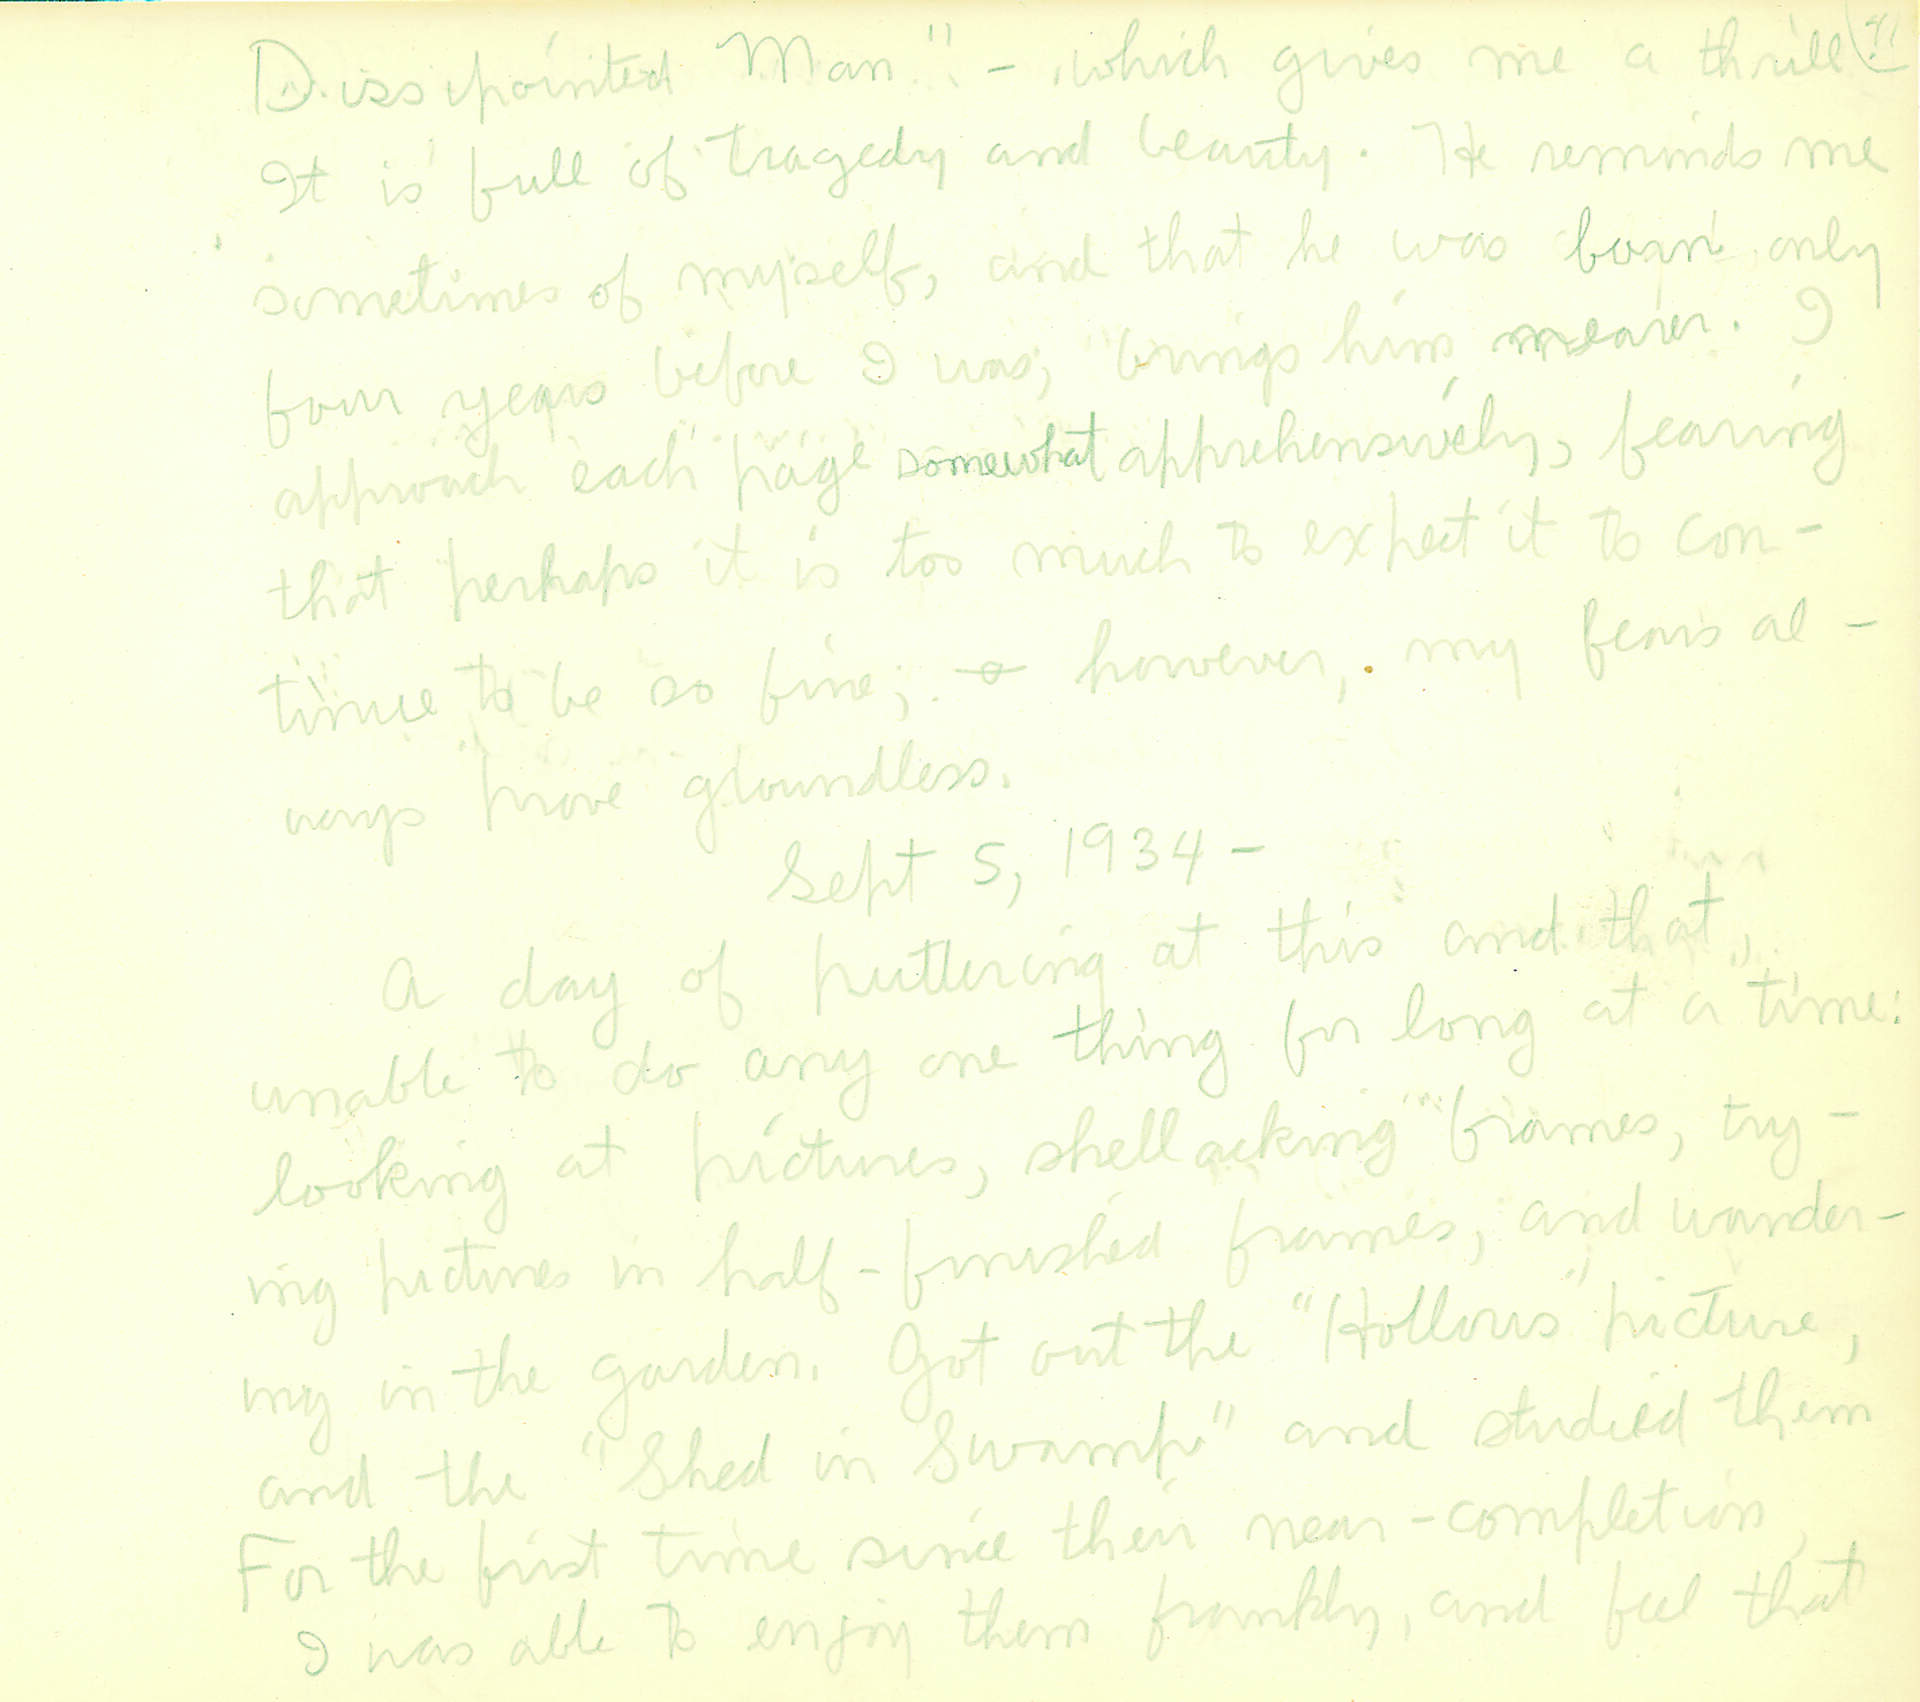 Dissipointed Man" - which gives me a thrill. 41
It is full of tragedy and beauty. He reminds me
sometimes of myself, and that he was born only
four years before I was, brings him nearer. I
approach each page somewhat apprehensively, fearing
that perhaps it is too much to expect it to con-
tinue to be so fine; however, my fears al-
ways prove groundless.
Sept 5, 1934 -
A day of puttering at this and that,
unable to do any one thing for long at a time:
looking at pictures, shellacking frames, try-
ing pictures in half-finished frames, and wander-
ing in the garden. Got out the "Hollows" picture,
and the "Shed in Swamp" and studied them
For the first time since their near-completion,
I was able to enjoy them frankly, and feel that